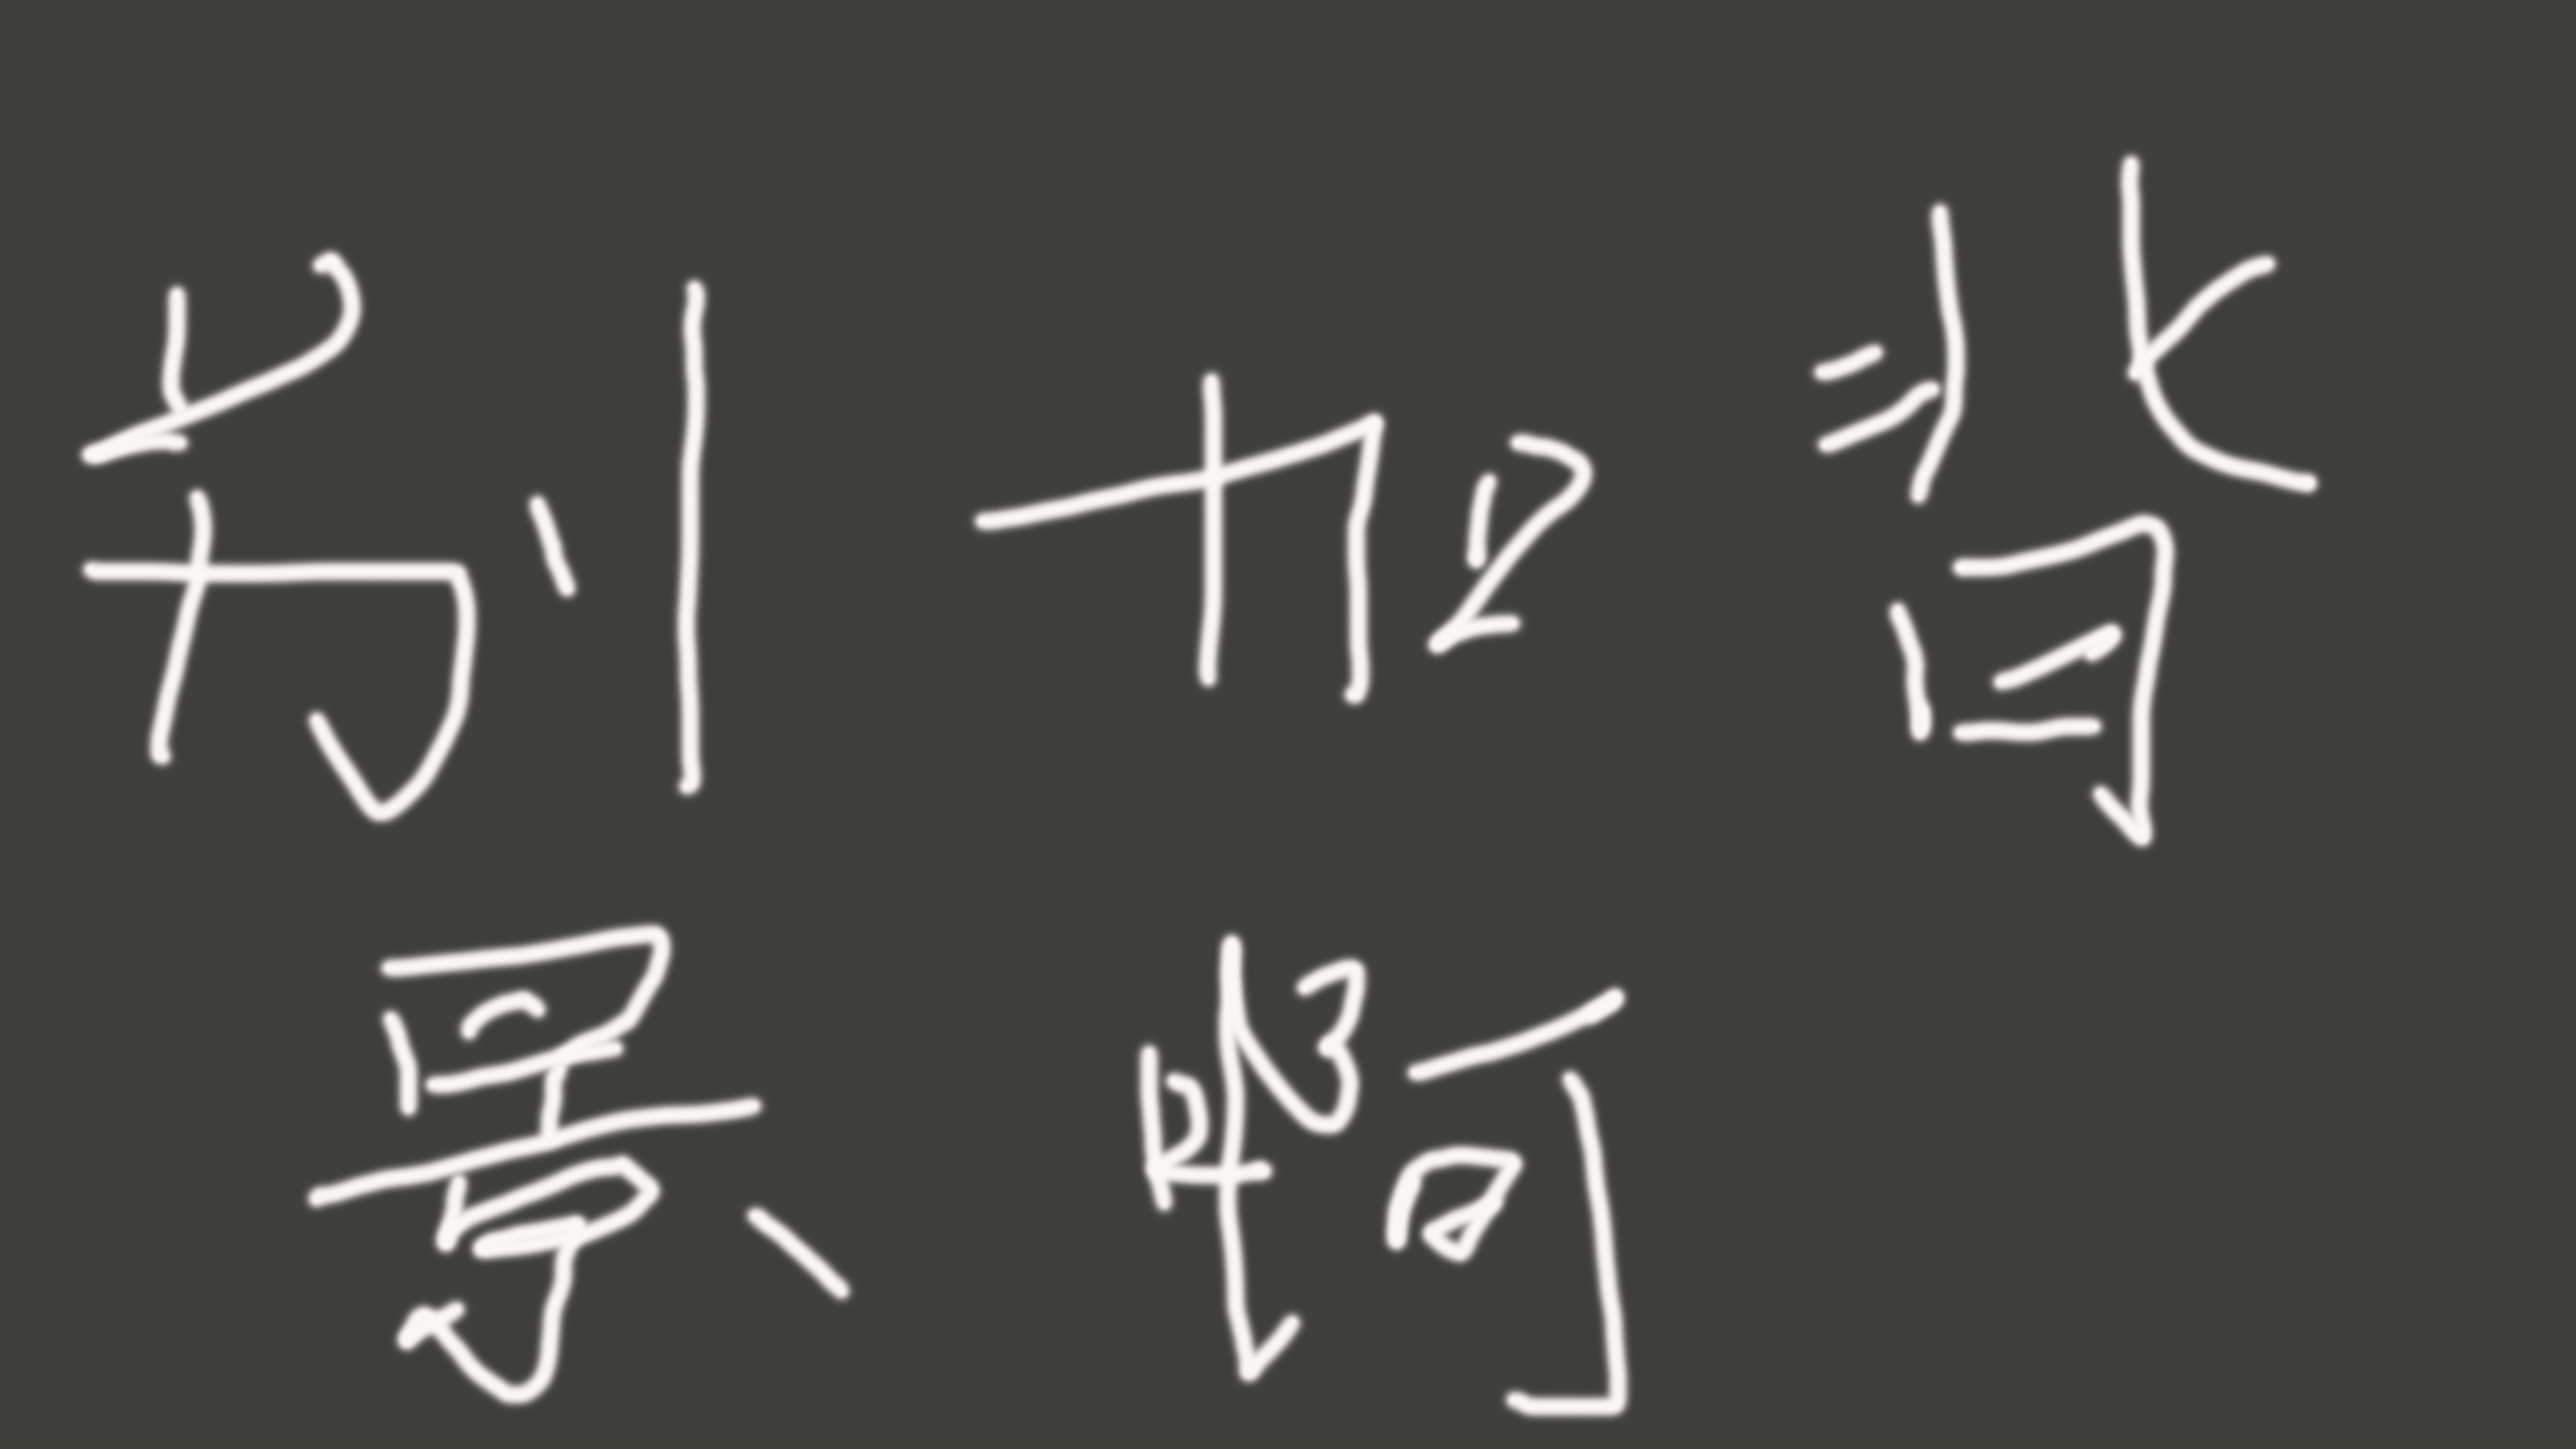 别加背
景啊